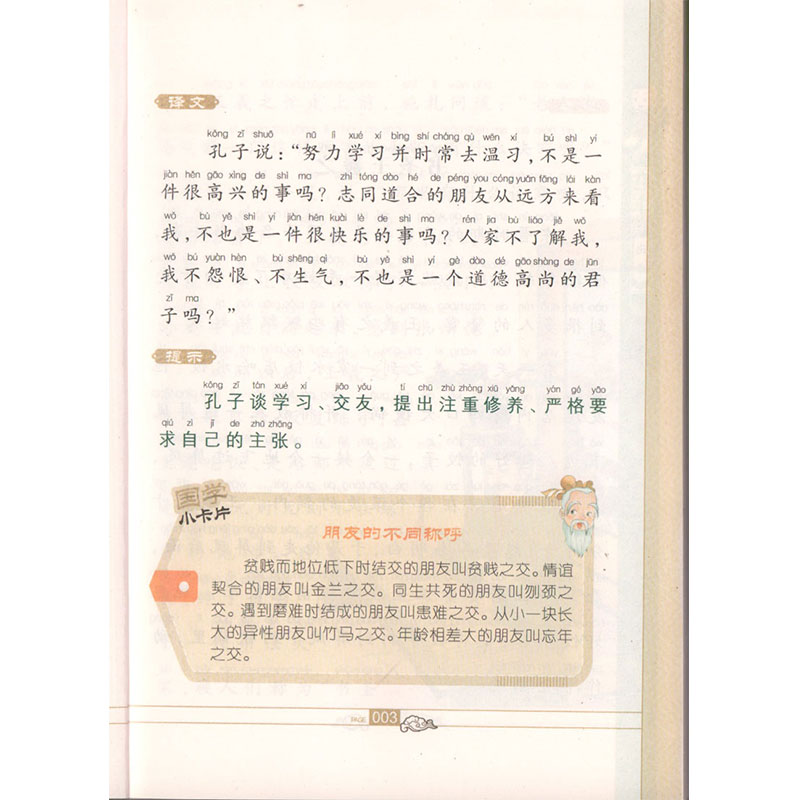 译文
kǒng zǐ shuō nǔ lì xué xí bìng shí cháng qù wēn xí bú shì yí
孔子说：“努力学习并时常去温习，不是一
jiàn hěn gāo xìng de shì ma zhì tóng dào hé de péng you cóng yuǎn fāng lái kàn
件很高兴的事吗？志同道合的朋友从远方来看
wǒ bù yě shì yí jiàn hěn kuài lè de shì ma rén jia bù liǎo jiě wǒ
我，不也是一件很快乐的事吗？人家不了解我，
wǒ bú yuàn hèn bù shēng qì bù yě shì yí gè dào dé gāo shàng de jūn
我不怨恨、不生气，不也是一个道德高尚的君
zǐ ma
子吗？”
提示
kǒng zǐ tán xué xí jiāo yǒu tí chū zhù zhòng xiū yǎng yán gé yāo
孔子谈学习、交友，提出注重修养、严格要
qiú zì jǐ de zhǔ zhāng
求自己的主张。
国学
小卡片
朋友的不同称呼
贫贱而地位低下时结交的朋友叫贫贱之交。情谊
契合的朋友叫金兰之交。同生共死的朋友叫刎颈之
交。遇到磨难时结成的朋友叫患难之交。从小一块长
大的异性朋友叫竹马之交。年龄相差大的朋友叫忘年
之交。
PAGE 003